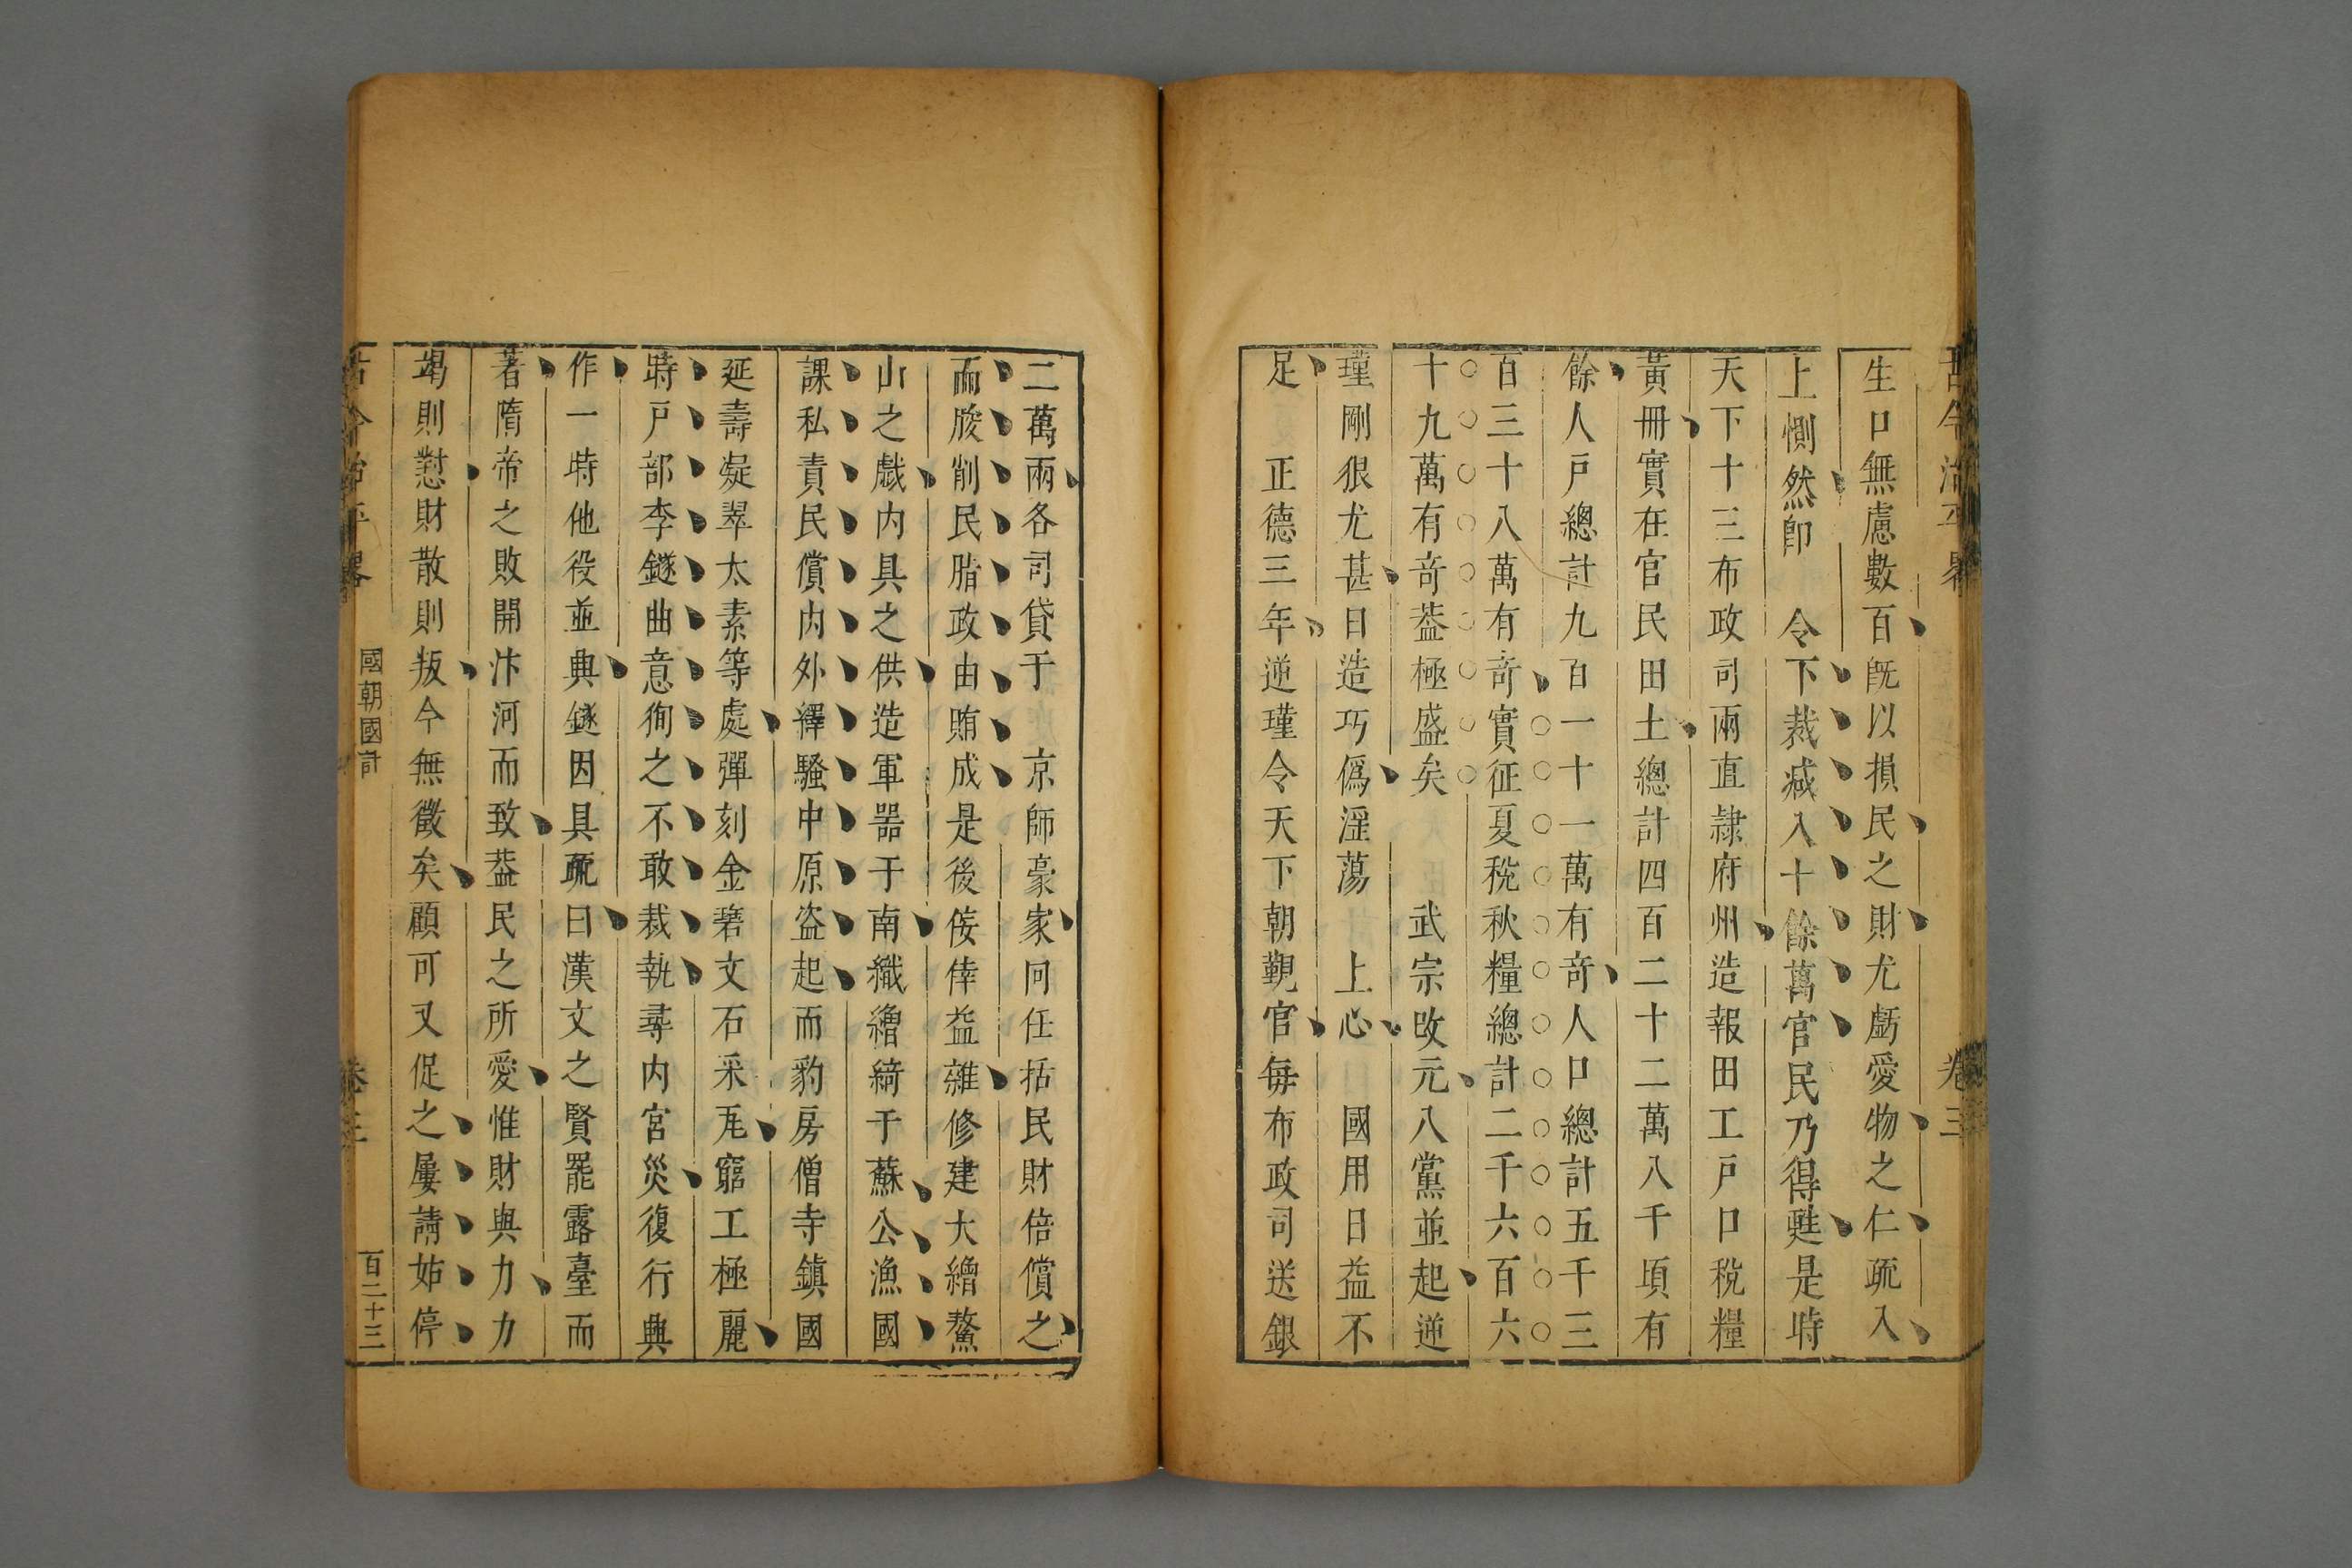 古今治平畧
卷三
生口無慮數百旣以損民之財尤虧愛物之仁疏入
上惻然卽 令下裁減入十餘萬官民乃得甦是時
天下十三布政司兩直隷府州造報田工戸口稅糧
黃冊實在官民田土總計四百二十二萬八千頃有
餘人戸總計九百一十一萬有竒人口總計五千三
百三十八萬有竒實征夏稅秋糧總計二千六百六
十九萬有竒葢極盛矣 武宗改元八黨並起逆
瑾剛狠尤甚日造巧僞淫蕩 上心 國用日益不
足 正德三年逆瑾令天下朝覲官每布政司送銀
二萬兩各司貸于 京師豪家囘任括民財倍償之
而朘削民脂政由賄成是後侫倖益雜修建大繒鰲
山之戯内具之供造軍噐于南織繒綺于蘇公漁國
課私責民償内外繹騷中原盗起而豹房僧寺鎮國
延壽凝翠太素等處彈刻金碧文石采㼚窮工極麗
時戸部李鐩曲意狥之不敢裁執尋内宮災復行興
作一時他役並興鐩因具疏曰漢文之賢罷露臺而
著隋帝之敗開汴河而致葢民之所愛惟財與力力
竭則懟財散則叛今無徵矣顧可又促之屢請姑停
古今治平畧
國朝國計
卷三
百二十三